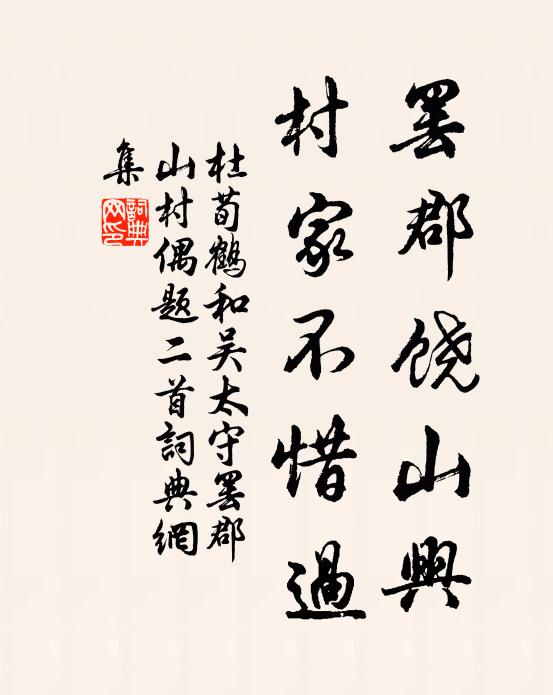 罢郡饶山興
村家不惜過
杜荀鶴和吴太守罢郡
山村偶题二首詞典網
集
詞典
网印